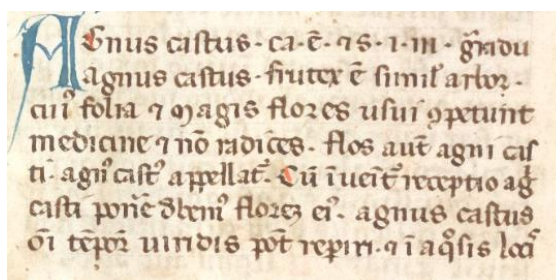 AGnus castus · ca · ē · ⁊ s · i · iii · gͣdu
agnus castus · frutex ē simil' arbor ·
cuiꝰ folia ⁊ magis flores usui ꝯpetunt
medicine ⁊ nō radices · flos aut̄ agni cas
ti · agnꝰ castꝰ appellat᷑ · Cū īueit᷑ receptio ag
casti ponꝰe dbemꝰ florez eiꝰ · agnus castus
oī tēpor uiridis pōt reperiri · ⁊ ī aqͦsis locꝭ